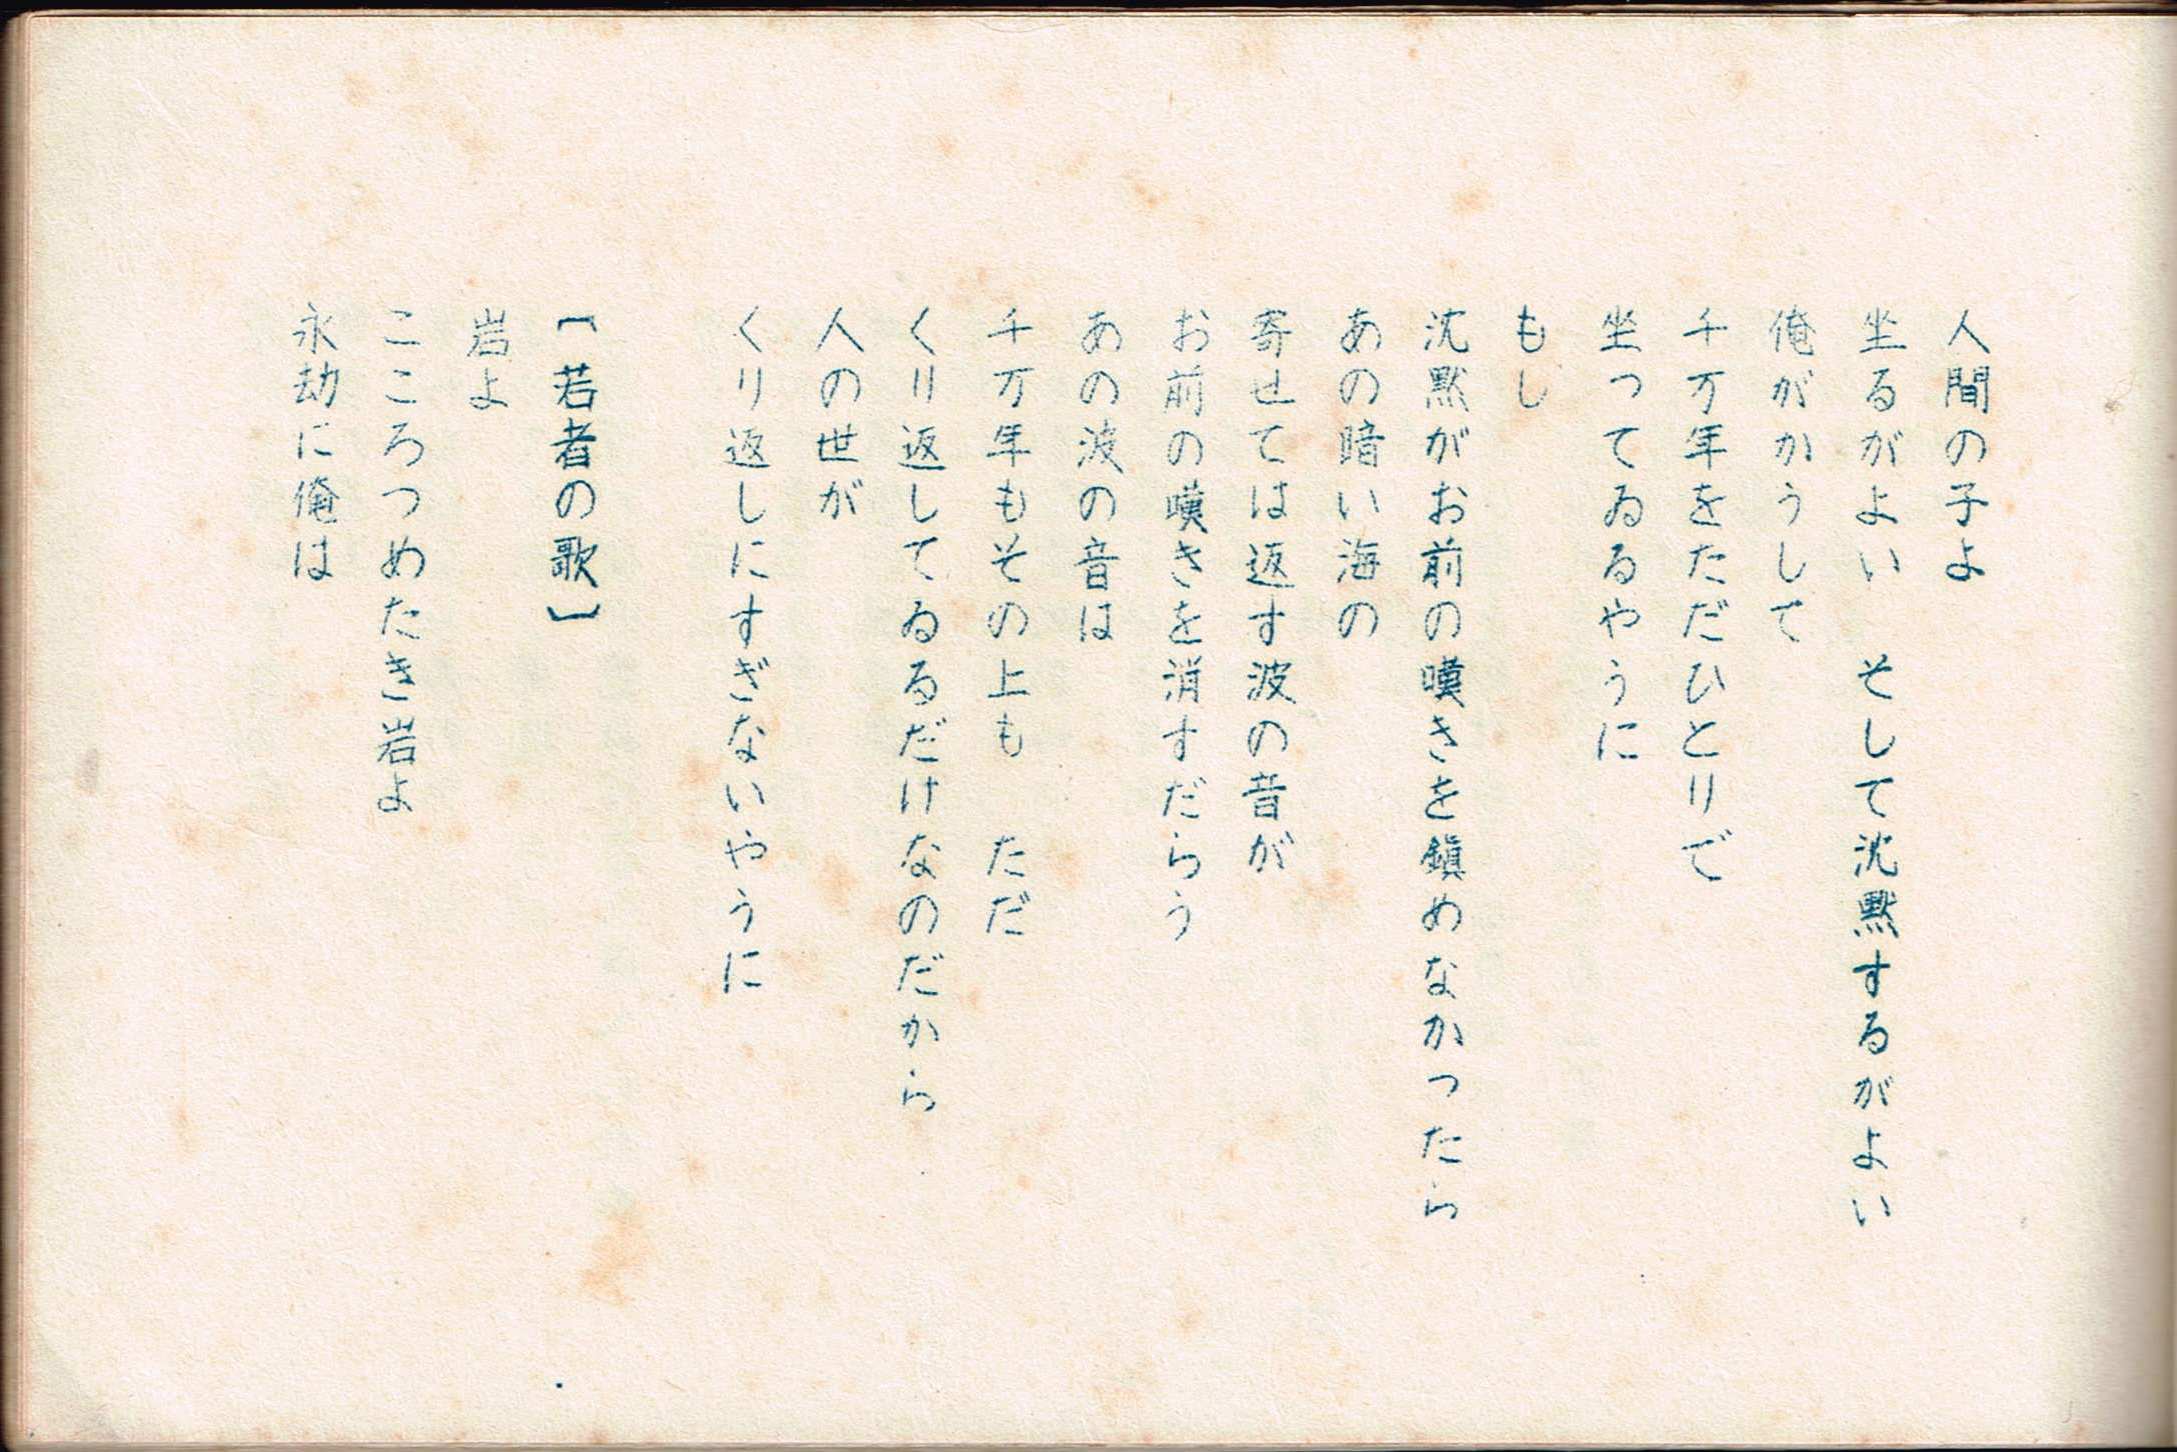 人間の子よ
坐るがよい　そして沈黙するがよい
俺がかうして
千万年をただひとりで
坐ってゐるやうに
もし
沈黙がお前の嘆きを鎭めなかったら
あの暗い海の
寄せては返す波の音が
お前の嘆きを消すだらう
あの波の音は
千万年もその上も　ただ
くり返してゐるだけなのだから
人の世が
くり返しにすぎないやうに
【若者の歌】
岩よ
こころつめたき岩よ
永劫に俺は